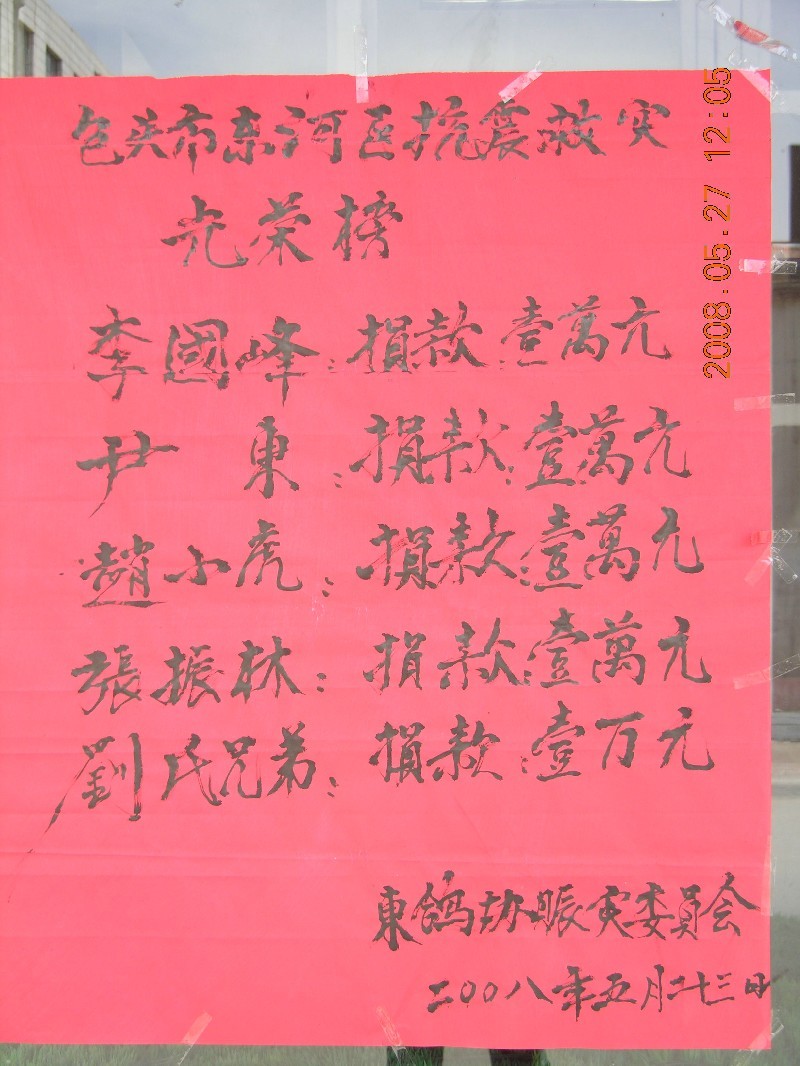 包头市东河区抗震救灾
光荣榜
李國峰:捐款壹萬元
尹東:捐款:壹萬元
趙小虎:捐款:壹萬元
張振林:捐款:壹萬元
劉氏兄弟:捐款:壹万元
東鸽协賑灾委員会
二00八年五月二十三日
2008.05.27 12:05